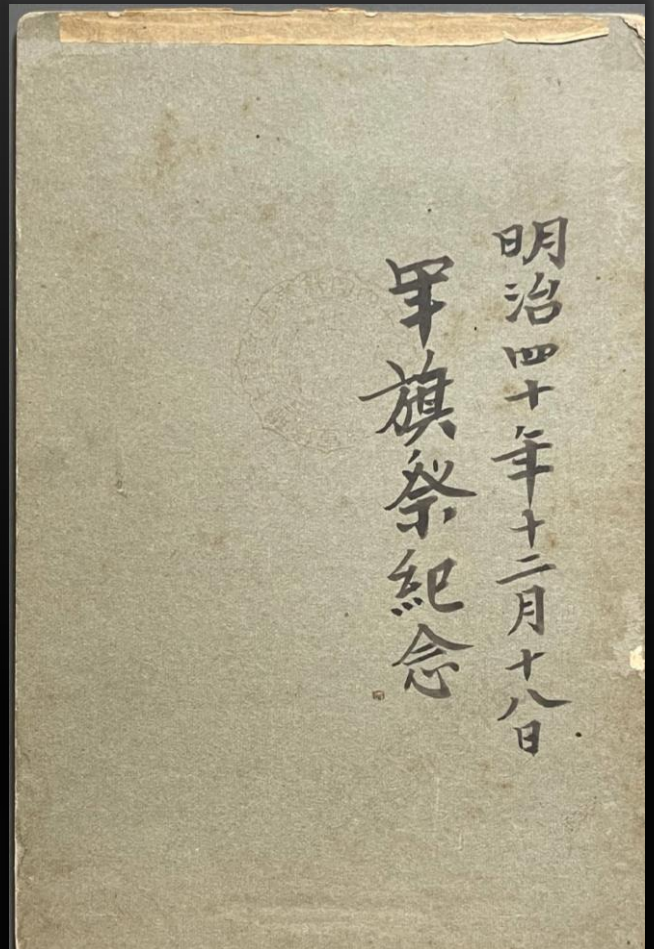 明治四十年十二月十八日
軍旗祭紀念